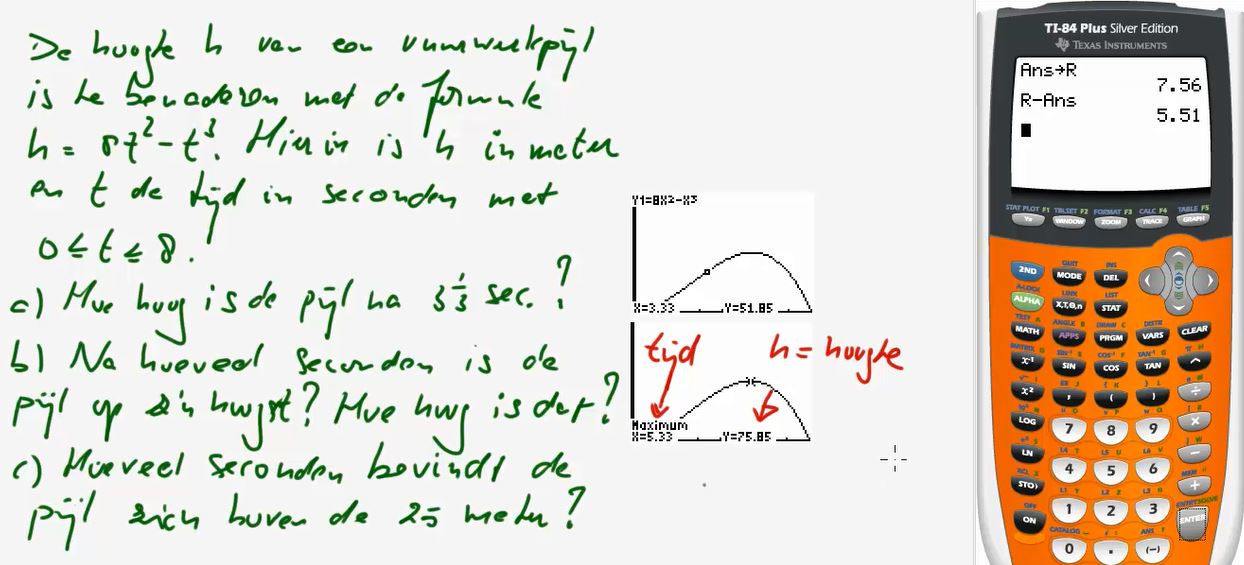 De hoogte h van een vuurwerkpijl
is te benaderen met de formule
h = 8t² - t³. Hierin is h in meter
en t de tijd in seconden met
0 ≤ t ≤ 8.
a) Hoe hoog is de pijl na 3 1/3 sec.?
b) Na hoeveel seconden is de
pijl op z'n hoogst? Hoe hoog is dat?
c) Hoeveel seconden bevindt de
pijl zich boven de 25 meter?
Y1=8X2-X3
X=3.33 Y=51.85
tijd h = hoogte
Maximum
X=5.33 Y=75.85
TI-84 Plus Silver Edition
TEXAS INSTRUMENTS
Ans→R
7.56
R-Ans
5.51
STAT PLOT F1 TBLSET F2 FORMAT F3 CALC F4 TABLE F5
Y= WINDOW ZOOM TRACE GRAPH
QUIT INS
2ND MODE DEL
A-LOCK LINK LIST
ALPHA X,T,Θ,n STAT
TEST A ANGLE B DRAW C DISTR
MATH APPS PRGM VARS CLEAR
MATRIX D SIN⁻¹ E COS⁻¹ F TAN⁻¹ G π H
x⁻¹ SIN COS TAN ^
x² , ( ) ÷
LOG 7 8 9 ×
LN 4 5 6 −
RCL X L1 Y L2 Z L3 θ MEM "
STO› 1 2 3 +
OFF CATALOG i : ANS ? ENTRY SOLVE
ON 0 . (−) ENTER